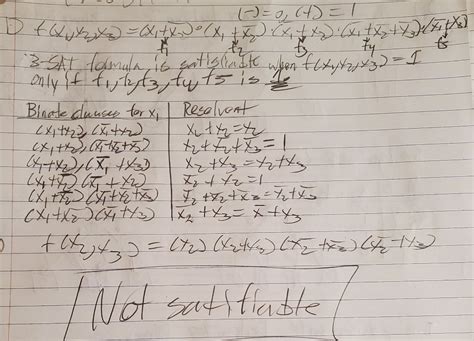 (-) = 02 (+) = 1
1) f(x₁,x₂,x₃) = (x₁+x₂)·(x₁+x̄₂)·(x̄₁+x₂)·(x̄₁+x̄₂+x̄₃)·(x̄₁+x₃)
t₁ t₂ t₃ t₄ t₅
3-SAT formula is satisfiable when f(x₁,x₂,x₃) = 1
only if t₁, t₂, t₃, t₄, t5 is 1
Binate clauses for x₁ | Resolvant
(x₁+x₂),(x̄₁+x₂) | x₂+x₂=x₂
(x₁+x₂),(x̄₁+x̄₂+x̄₃) | x₂+x̄₂+x̄₃=1
(x₁+x₂),(x̄₁+x₃) | x₂+x₃=x₂+x₃
(x₁+x̄₂)(x̄₁+x₂) | x̄₂+x₂=1
(x₁+x̄₂)(x̄₁+x̄₂+x̄₃) | x̄₂+x̄₂+x̄₃=x̄₂+x̄₃
(x₁+x̄₂)(x̄₁+x₃) | x̄₂+x₃=x̄+x₃
f(x₂,x₃) = (x₂)(x₂+x₃)(x̄₂+x̄₃)(x̄₂+x₃)
Not satifiable